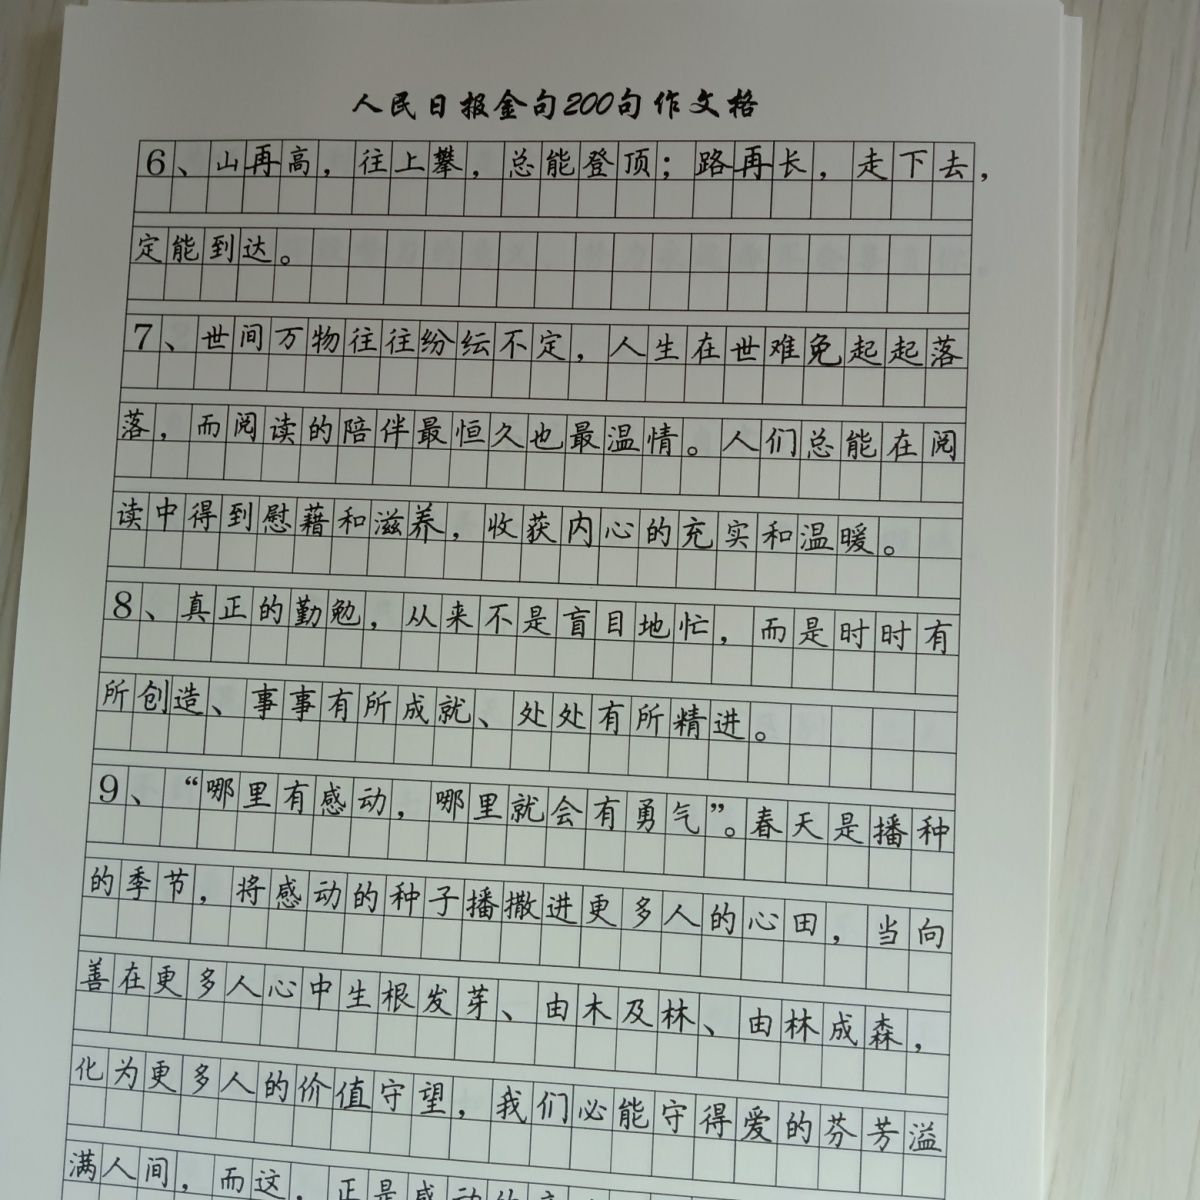 人民日报金句200句作文格
6、山再高，往上攀，总能登顶；路再长，走下去，
定能到达。
7、世间万物往往纷纭不定，人生在世难免起起落
落，而阅读的陪伴最恒久也最温情。人们总能在阅
读中得到慰藉和滋养，收获内心的充实和温暖。
8、真正的勤勉，从来不是盲目地忙，而是时时有
所创造、事事有所成就、处处有所精进。
9、“哪里有感动，哪里就会有勇气”。春天是播种
的季节，将感动的种子播撒进更多人的心田，当向
善在更多人心中生根发芽、由木及林、由林成森，
化为更多人的价值守望，我们必能守得爱的芬芳溢
满人间，而这，正是感动的